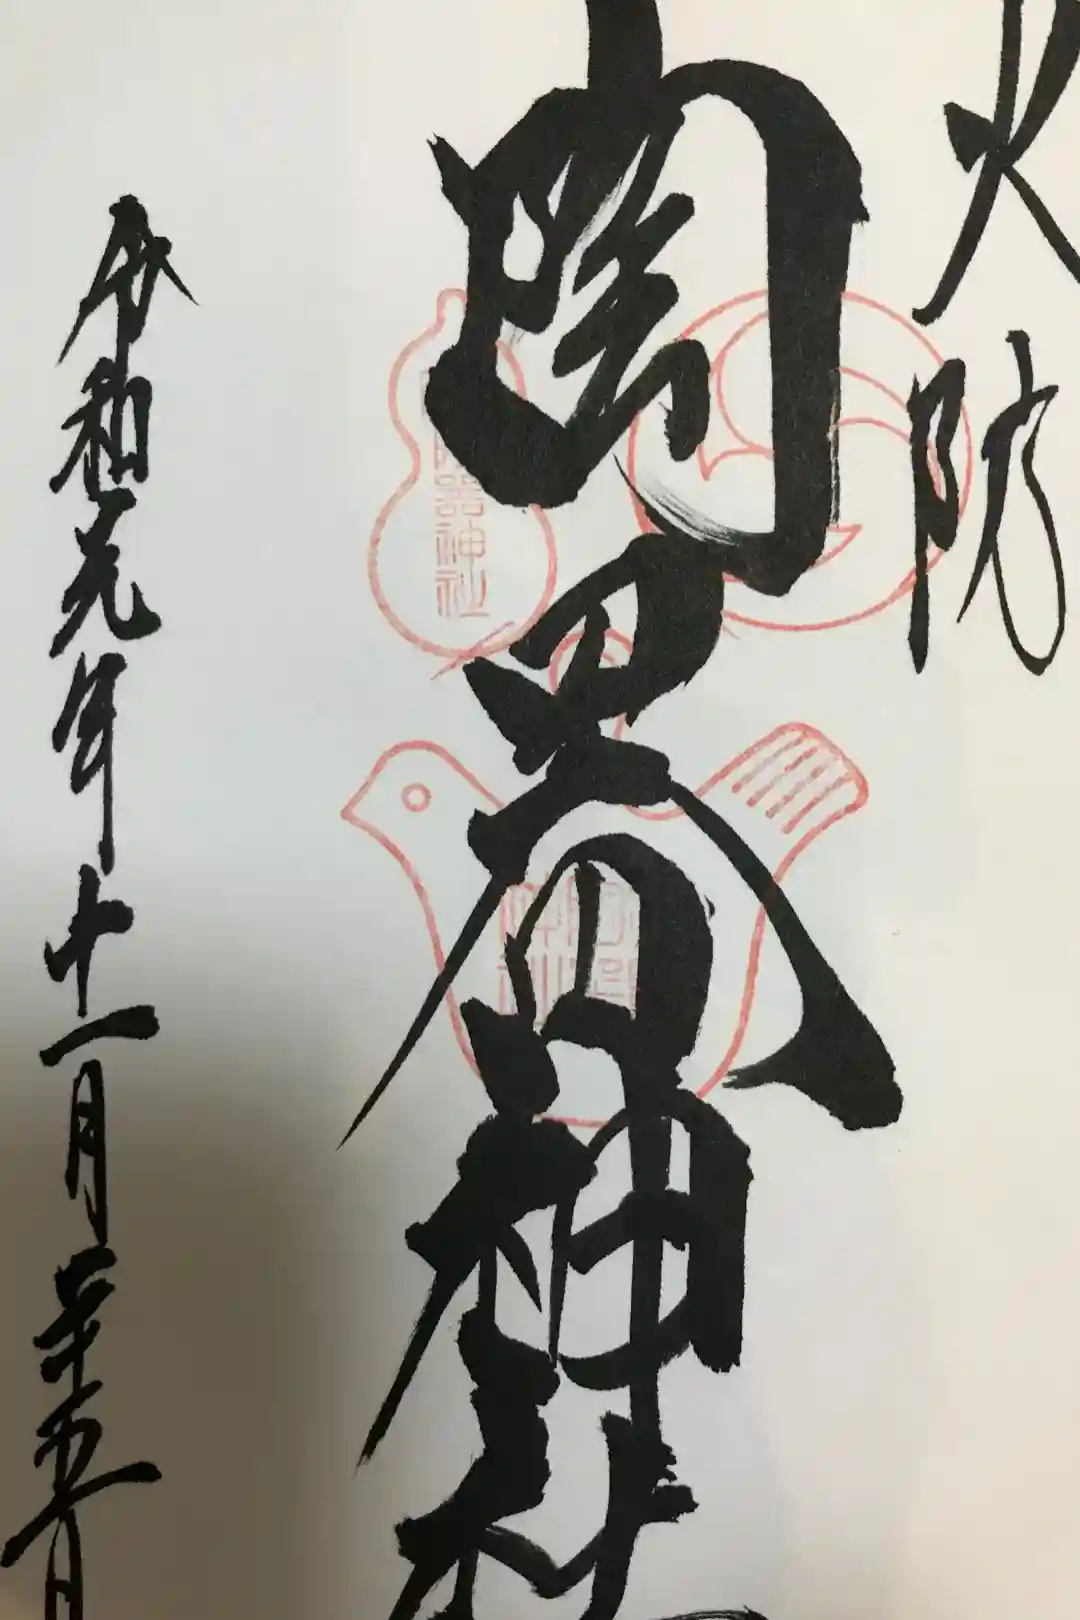 火防
陶器神社
令和元年十一月二十五日
陶器神社
陶器神社